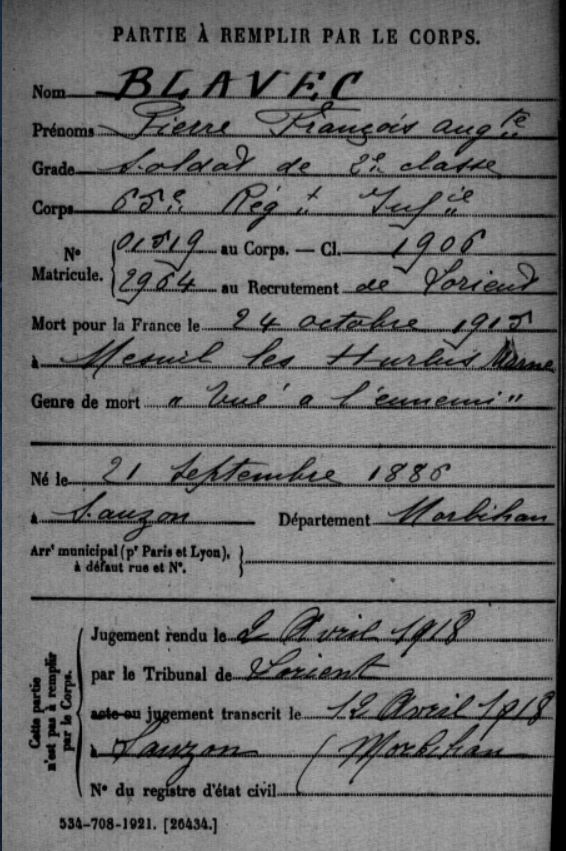 PARTIE À REMPLIR PAR LE CORPS.
Nom BLAVEC
Prénoms Pierre François Aug.te
Grade Soldat de 2e classe
Corps 65e Rég.t Inf.ie
No Matricule. { 01519 au Corps. — Cl. 1906
2964 au Recrutement de Lorient
Mort pour la France le 24 octobre 1915
à Mesnil les Hurlus Marne
Genre de mort " tué à l'ennemi "
Né le 21 Septembre 1886
à Sauzon Département Morbihan
Arrt municipal (pr Paris et Lyon), à défaut rue et No. }
Cette partie n'est pas à remplir par le Corps.
Jugement rendu le 2 Avril 1918
par le Tribunal de Lorient
acte ou jugement transcrit le 12 Avril 1918
à Sauzon (Morbihan
No du registre d'état civil
534-708-1921. [26434.]